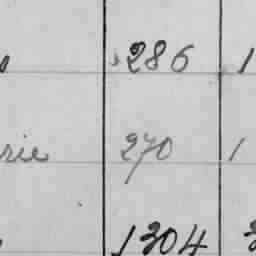 286 1
rie 270 1
1304 3